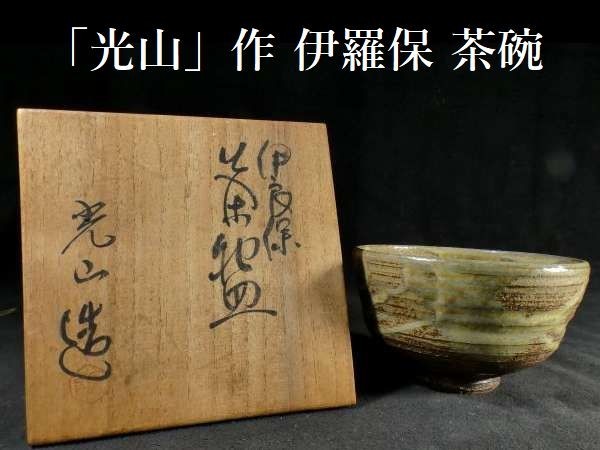 「光山」作 伊羅保 茶碗
伊良保
茶碗
光山造